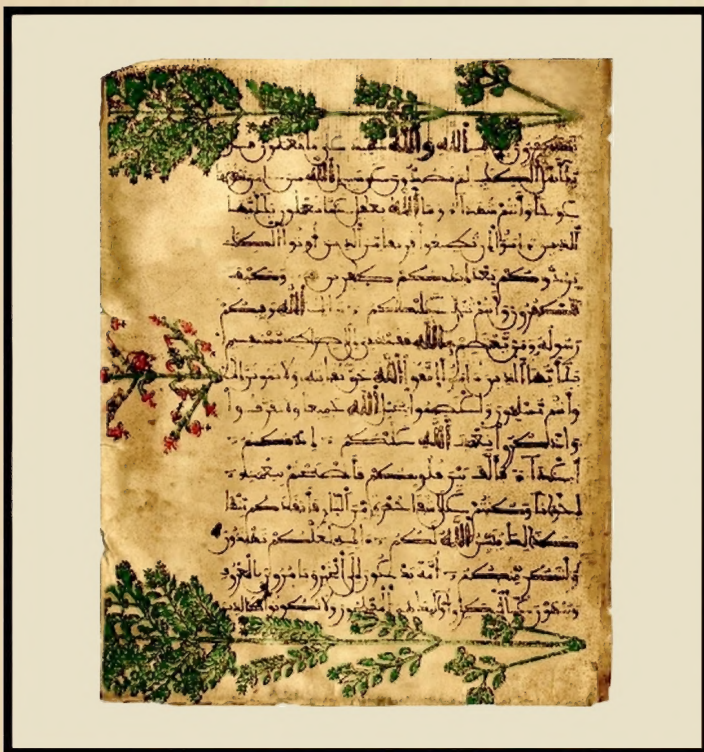 تكفرون الله والله شهيد على ما تعملون قل
يأهل الكتب لم تصدون عن سبيل الله من امن تبغونها
عوجا وأنتم شهداء وما الله بغفل عما تعملون يأيها
الذين امنوا إن تطيعوا فريقا من الذين أوتوا الكتب
يردوكم بعد إيمنكم كفرين وكيف
تكفرون وأنتم تتلى عليكم ايت الله وفيكم
رسوله ومن يعتصم بالله فقد هدي إلى صرط مستقيم
يأيها الذين امنوا اتقوا الله حق تقاته ولا تموتن إلا
وأنتم مسلمون واعتصموا بحبل الله جميعا ولا تفرقوا
واذكروا نعمت الله عليكم إذ كنتم
أعداء فألف بين قلوبكم فأصبحتم بنعمته
إخوانا وكنتم على شفا حفرة من النار فأنقذكم منها
كذلك يبين الله لكم ايته لعلكم تهتدون
ولتكن منكم أمة يدعون إلى الخير ويأمرون بالمعروف
وينهون عن المنكر وأولئك هم المفلحون ولا تكونوا كالذين